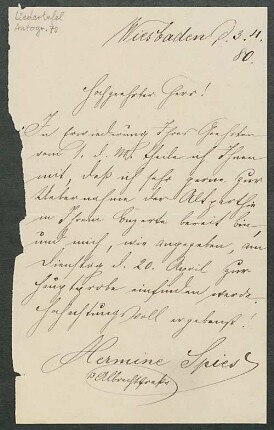 Liedertafel
Autogr. 70
Wiesbaden d. 3. 4.
80.
Hochgeehrter Herr!
In Erwiederung Ihres Geehrten
vom 1. d. Mts theile ich Ihnen
mit, daß ich sehr gerne zur
Uebernahme der Altparthie
in Ihrem Conzerte bereit bin
und mich, wie angegeben, am
Dienstag d. 20. April zur
Hauptprobe einfinden werde.
Hochachtungsvoll ergebenst!
Hermine Spies
Albrechtstraße